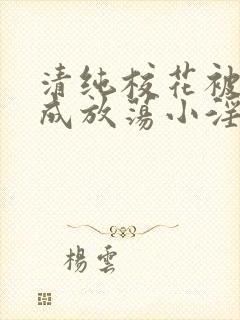 清纯校花被
成放荡小淫
楊雲